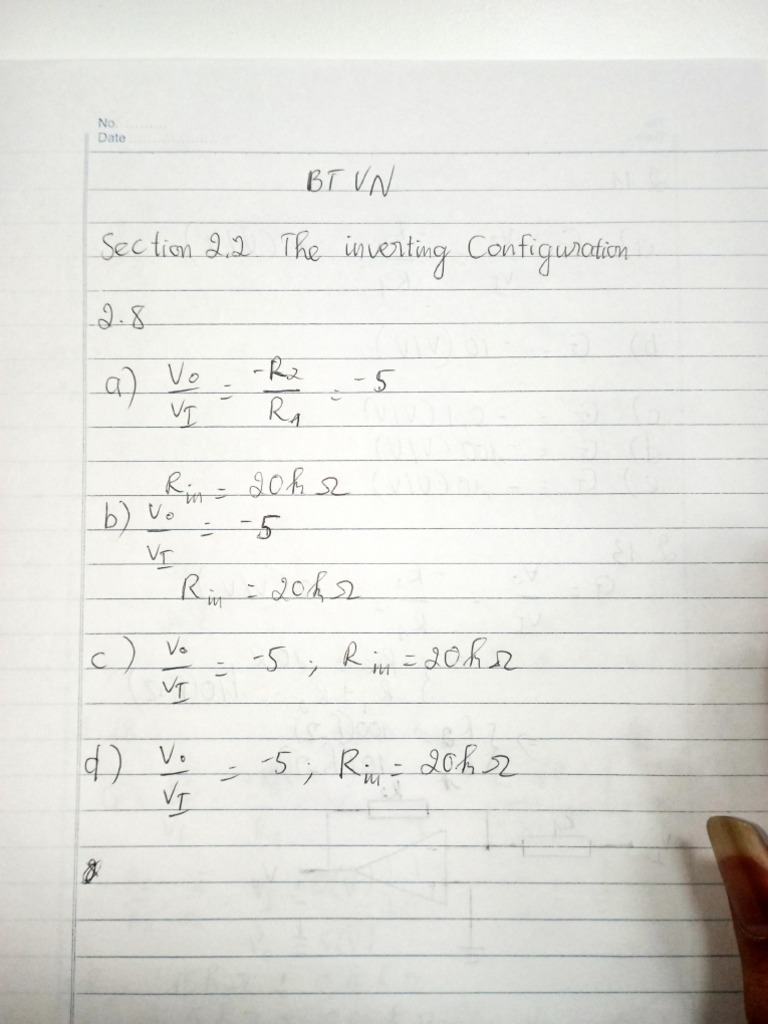 No.
Date
BTVN
Section 2.2 The inverting Configuration
2.8
a) Vo/VI = -R2/R1 = -5
Rin = 20kΩ
b) Vo/VI = -5
Rin = 20kΩ
c) Vo/VI = -5; Rin = 20kΩ
d) Vo/VI = -5; Rin = 20kΩ